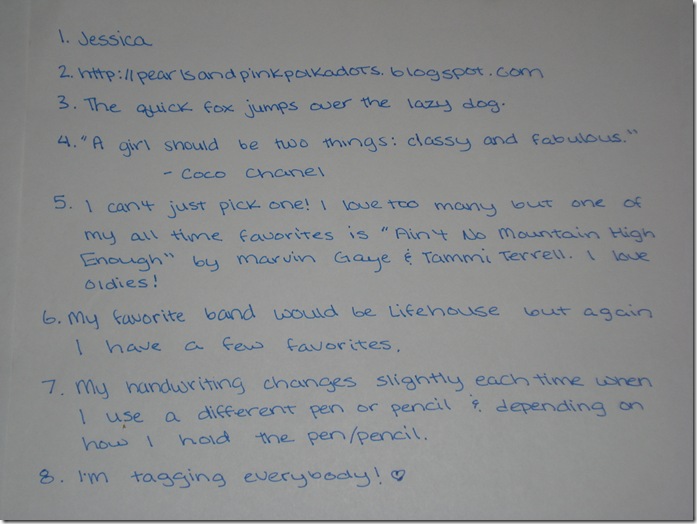 1. Jessica
2. http://pearlsandpinkpolkadots.blogspot.com
3. The quick fox jumps over the lazy dog.
4. "A girl should be two things: classy and fabulous."
- Coco Chanel
5. I can't just pick one! I love too many but one of
my all time favorites is "Ain't No Mountain High
Enough" by Marvin Gaye & Tammi Terrell. I love
oldies!
6. My favorite band would be Lifehouse but again
I have a few favorites.
7. My handwriting changes slightly each time when
I use a different pen or pencil & depending on
how I hold the pen/pencil.
8. I'm tagging everybody! ♡